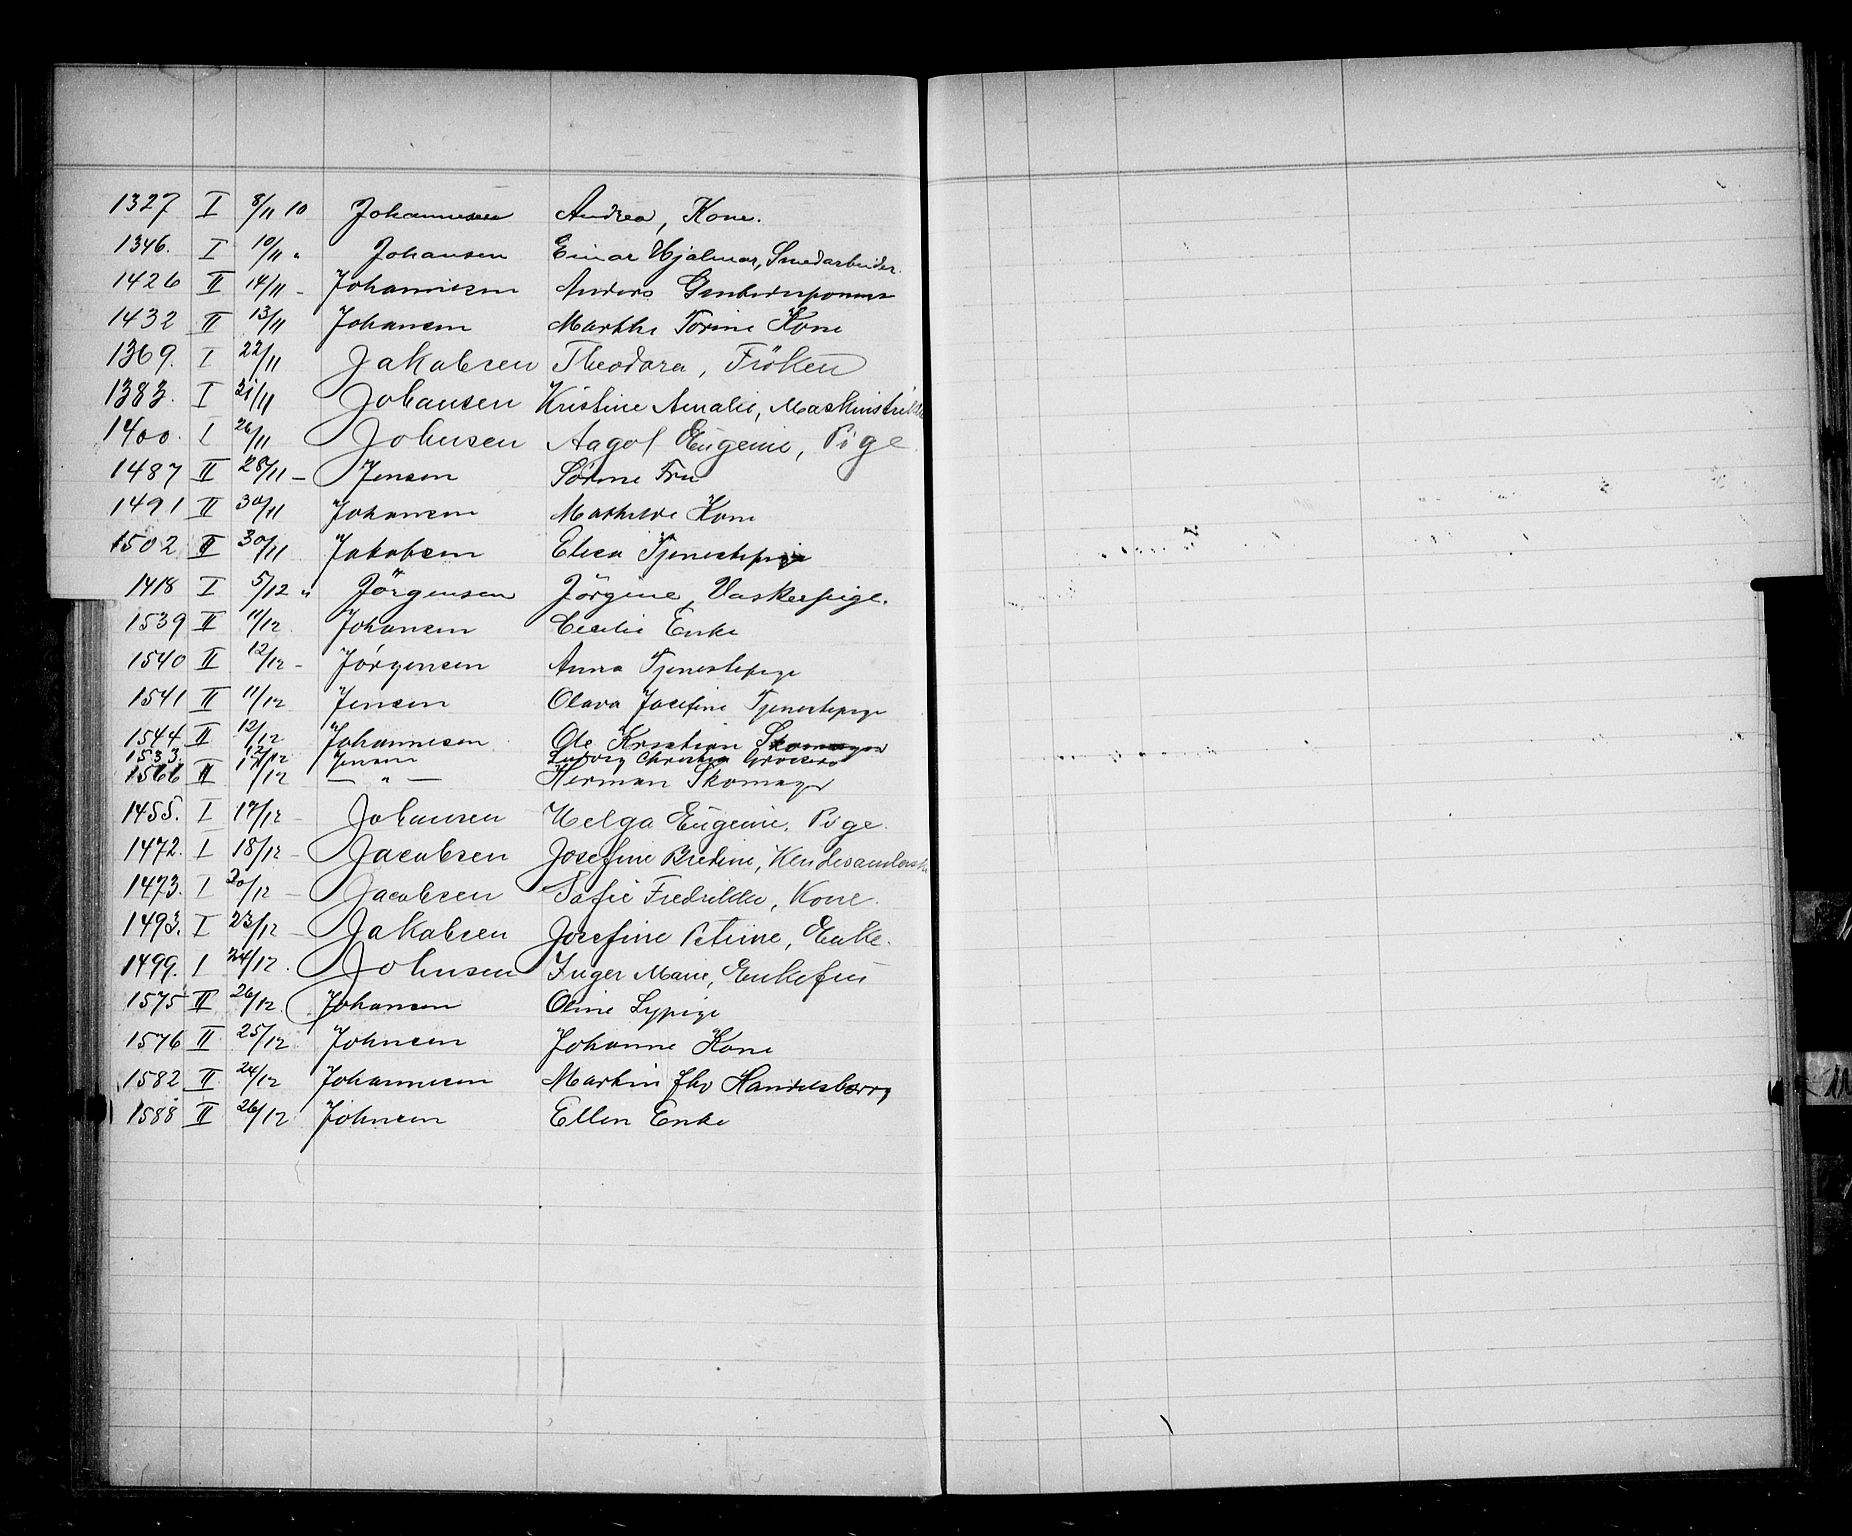 1327 I 8/11 10 Johannesen Andrea, Kone.
1346. I 10/11 " Johansen Einar Hjalmar, Smedarbeider.
1426 II 14/11 - Johannesen Anders
1432 II 13/11 Johansen Marthe Torine Kone
1369. I 22/11 Jakobsen Theodora, Fröken
1383. I 21/11 Johansen Kristine Amalie,
1400. I 26/11 Johnsen Aagot Eugenie, Pige
1487 II 28/11 - Jensen Sörine Fru
1491 II 30/11 Johansen Mathilde Kone
1502 II 30/11 Jakobsen Elisa Tjenestepige
1418 I 5/12 " Jörgensen Jörgine, Vaskepige.
1539 II 11/12 Johansen Cecilie Enke
1540 II 12/12 - Jörgensen Anna Tjenestepige
1541 II 11/12 Jensen Olava Josefine Tjenestepige
1544 II 12/12 Johannesen Ole Kristian Skomager
1533 12/12 Jensen Ludvig Christian
1566 II 17/12 — " — Herman Skomager
1455. I 17/12 - Johansen Helga Eugenie, Pige.
1472. I 18/12 - Jacobsen Josefine Bredine,
1473. I 20/12 - Jacobsen Sofie Fredrikke, Kone.
1493. I 23/12 - Jakobsen Josefine Petrine, Enke.
1499. I 24/12. Johnsen Inger Marie, Enkefru
1575 II 26/12. Johansen Oline Sypige
1576 II 25/12 Johnsen Johanne Kone
1582 II 24/12 Johannesen Martin fhv Handelsborg
1588 II 26/12 Johnsen Ellen Enke